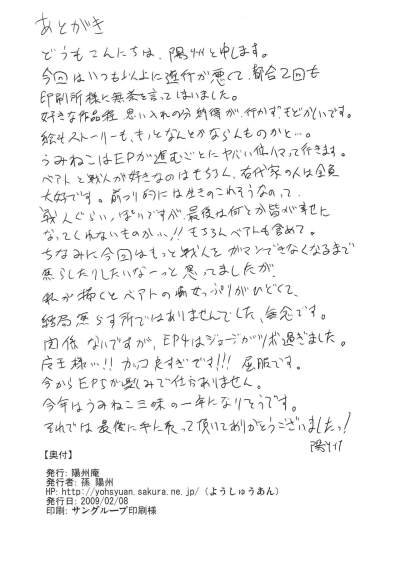 あとがき
どうもこんにちは、陽州と申します。
今回はいつも以上に進行が悪くて、都合2回も
印刷所様に無茶を言ってしまいました。
好きな作品程、思い入れの分納得が行かずもどかしいです。
絵もストーリーも、もっとなんとかならんものかと…。
うみねこはEPが進むごとにヤバい位ハマって行きます。
ベアトと戦人が好きなのはもちろん、右代家の人は全員
大好きです。前つり的には生きのこれそうなので、
戦人ぐらいっぽいですが、最後は何とか皆が幸せに
なってくれないものかい!! もちろんベアトも含めて。
ちなみに今回はもっと戦人を ガマンできなくなるまで
焦らしたりしたいなーっと思ってましたが、
私が描くとベアトの痴女っぷりがひどくて、
結局焦らす所ではありませんでした、無念です。
関係ないですが、EP4はジョージがツボ過ぎました。
店王様…!! カッコ良すぎです!!! 屈服です。
今からEP5が楽しみで仕方ありません。
今年はうみねこ三昧の一年になりそうです。
それでは最後に手に取って頂いてありがとうございましたっ!
陽州
【奥付】
発行: 陽州庵
発行者: 孫 陽州
HP: http://yohsyuan.sakura.ne.jp/ (ようしゅうあん)
発行日: 2009/02/08
印刷: サングループ印刷様